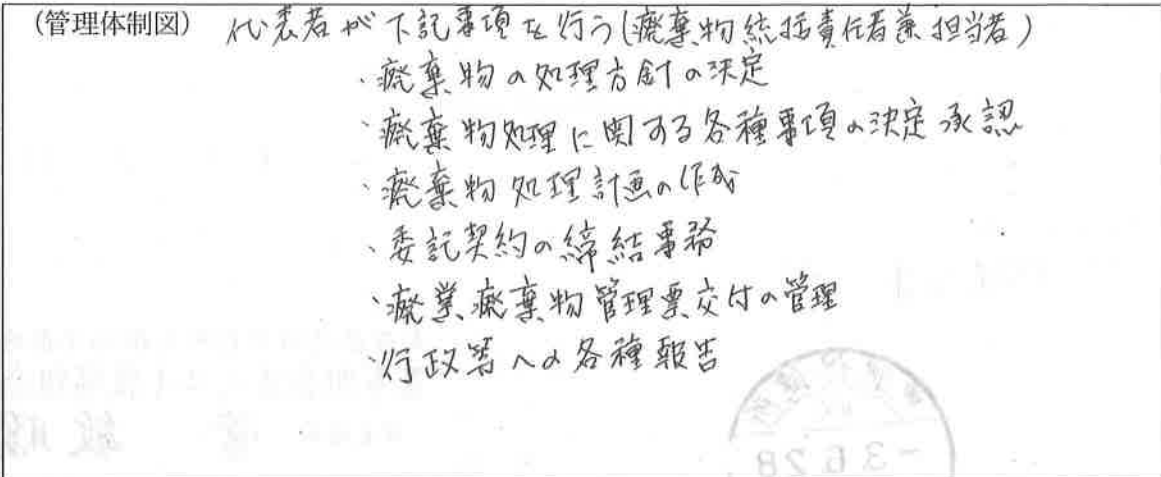 (管理体制図) 代表者が下記事項を行う(廃棄物統括責任者兼担当者)
・廃棄物の処理方針の決定
・廃棄物処理に関する各種事項の決定承認
・廃棄物処理計画の作成
・委託契約の締結事務
・廃業廃棄物管理票交付の管理
・行政等への各種報告
-3.6.28